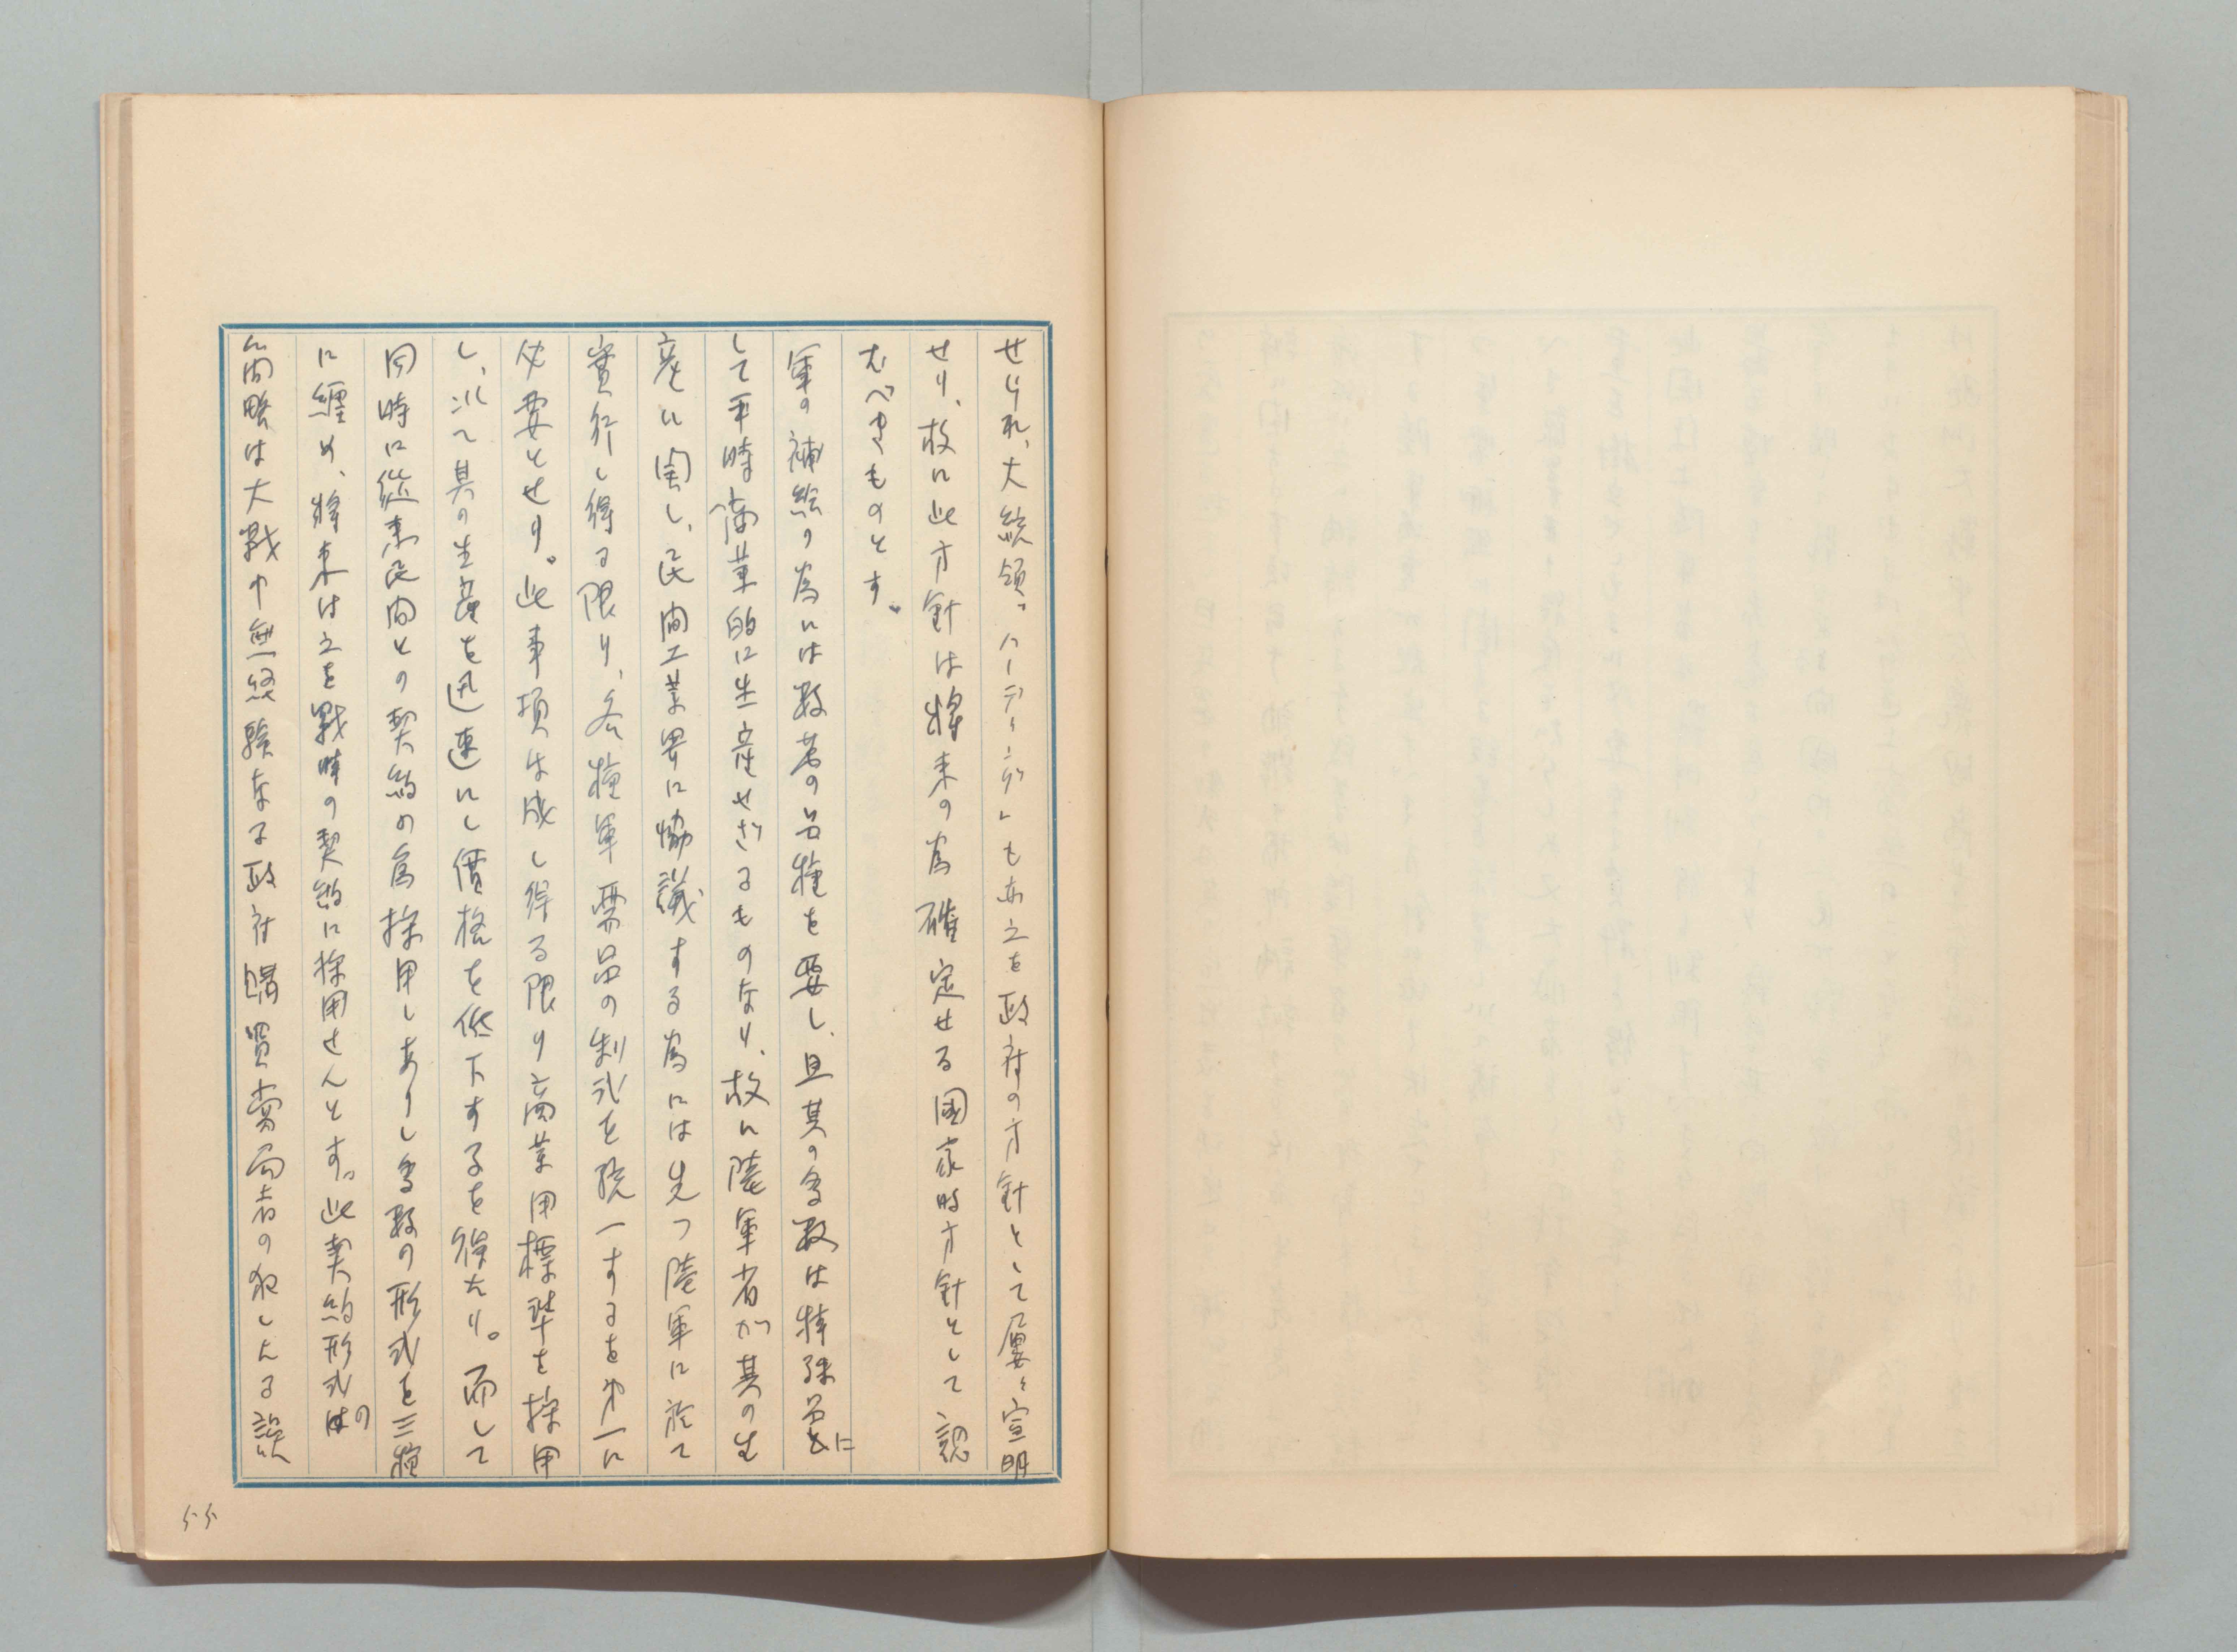 せられ、大統領「ハーディング」も亦之を政府の方針として屢々宣明
せり、故に此方針は将来の為確定せる国家的方針として認
むべきものとす。
軍の補給の為には数多の品種を要し、且其の多数は特殊品に
して平時商業的に生産せざるものなり、故に陸軍省が其の生
産に関し、民間工業界に協議する為には先つ陸軍に於て
實行し得る限り、各種軍需品の制式を統一するを第一に
必要とせり。此事項は成し得る限り商業用標準を採用
し、以て其の生産を迅速にし價格を低下するを得たり。而して
同時に從来民間との契約の為採用しありし多数の形式を三種
に纏め、将来は之を戰時の契約に採用せんとす。此契約形式の
簡略は大戰中無経験なる政府購買當局者の犯したる誤
55